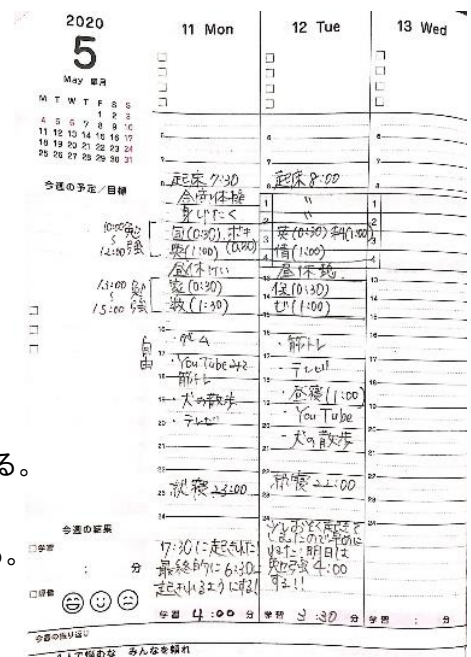 2020
5
May 皐月
M T W T F S S
1 2 3
4 5 6 7 8 9 10
11 12 13 14 15 16 17
18 19 20 21 22 23 24
25 26 27 28 29 30 31
今週の予定/目標
10:00
〜
12:00
勉強
13:00
〜
15:00
勉強
自由
る。
。
今週の結果
学習
: 分
評価
今週の振り返り
1人で悩むな みんなを頼れ
11 Mon
起床 7:30
身じたく
国(0:30)
英(1:00)
(0:30)
昼休けい
家(0:30)
数(1:30)
・ゲーム
・YouTubeみる
筋トレ
・犬の散歩
・テレビ
就寝 23:00
7:30に起きれた!
最終的に6:30に
起きれるようにする!
学習 4:00 分
12 Tue
起床 8:00
1 〃
2 〃
3 英(0:30) 科(1:00)
4 情(1:00)
昼休憩
保(0:30)
ぜ(1:00)
・筋トレ
・テレビ
・昼寝(1:00)
・YouTube
・犬の散歩
就寝 22:00
少しおそく起きて
しまったので早めに
ねた!明日は
勉強4:00
する!!
学習 3:30 分
13 Wed
1
2
3
4
学習 : 分